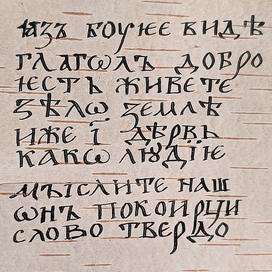 азъ боукее видѣ
глаголъ добро
ѥсть живете
ѕѣлѡ землѣ
иже ї дѣрвь
какѡ людїѥ
мыслите наш
ѡнъ покоирци
слово твердо